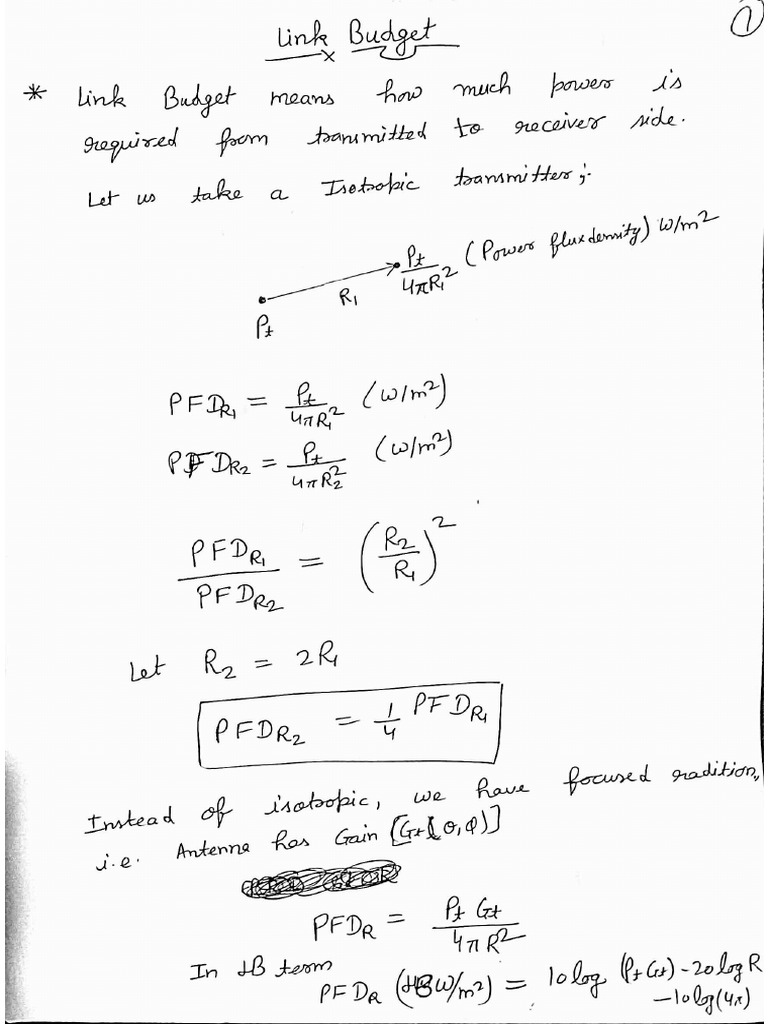 1
Link Budget
* Link Budget means how much power is
required from transmitted to receiver side.
Let us take a Isotropic transmitter;-
Pt/4πR₁² (Power flux density) W/m²
R₁
Pt
PFD_R₁ = Pt/4πR₁² (W/m²)
PFD_R₂ = Pt/4πR₂² (W/m²)
PFD_R₁/PFD_R₂ = (R₂/R₁)²
Let R₂ = 2R₁
PFD_R₂ = 1/4 PFD_R₁
Instead of isotropic, we have focused radition,
i.e. Antenna has Gain [Gt(θ,φ)]
PFD_R = Pt Gt/4πR²
In dB term
PFD_R (dBW/m²) = 10log (Pt Gt) - 20logR
- 10log(4π)